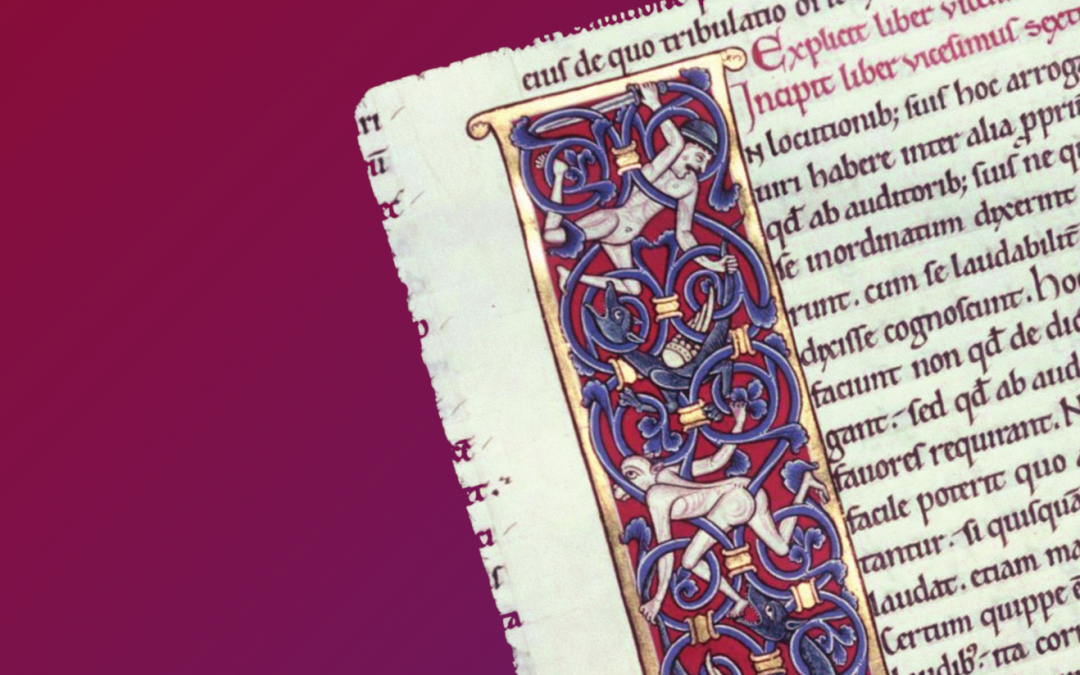 eiuſ de quo tribulatio
Explicit liber
Incipit liber viceſimuſ sext
N locutionib; ſuiſ hoc arroga
uiri habere inter alia ꝓpriu
qđ ab auditorib; ſuiſ ne q
ſe inordinatum dixerint
runt. cum ſe laudabilit̄
dixiſſe cognoſcunt. ho
faciunt non qđ de dic
gant. ſed qđ ab aud
fauoreſ requirant. N
facile poterit quo a
tantur. ſi quiſquā
laudat. etiam ma
Certum quippe ē
laudib; ita corr